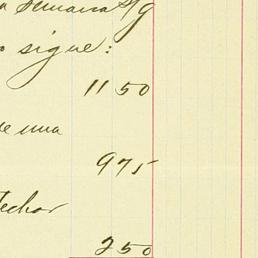 a Semana
o sigue:
11 50
de una
9 75
Techar
2 50